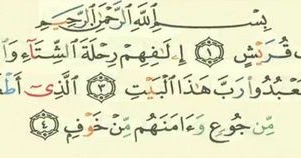 بِسْمِ ٱللَّهِ ٱلرَّحْمَٰنِ ٱلرَّحِيمِ
قُرَيْشٍ ۝١ إِۦلَٰفِهِمْ رِحْلَةَ ٱلشِّتَآءِ
رَبَّ هَٰذَا ٱلْبَيْتِ ۝٣ ٱلَّذِىٓ
مِّن جُوعٍ وَءَامَنَهُم مِّنْ خَوْفٍۭ ۝٤